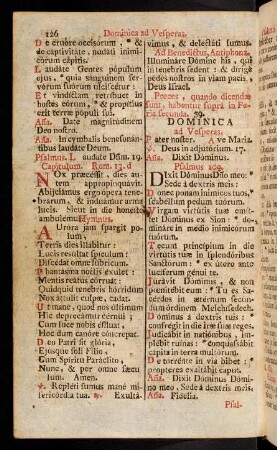 126 Dominica ad Vesperas.
De cruore occisorum, * &
de captivitate, nudati inimi-
corum capitis.
Laudate Gentes populum
ejus, * quia sanguinem ser-
vorum suorum ulciscetur:
Et vindictam retribuet in
hostes eorum, * & propitius
erit terræ populi sui.
Aña. Date magnitudinem
Deo nostro.
Aña. In cymbalis benesonan-
tibus laudate Deum.
Psalmus. Laudate Dñm. 19.
Capitulum. Rom. 13. d
NOx præcessit, dies au-
tem appropinquavit.
Abjiciamus ergo opera tene-
brarum, & induamur arma
lucis. Sicut in die honeste
ambulemus. Hymnus.
AUrora jam spargit po-
lum,
Terris dies illabitur:
Lucis resultat spiculum
Discedat omne lubricum.
Phantasma noctis exulet:
Mentis reatus corruat:
Quidquid tenebris horridum
Nox attulit culpæ, cadat.
Ut mane, quod nos ultimum
Hic deprecamur cernui;
Cum luce nobis effluat,
Hoc dum canore concrepat.
Deo Patri sit gloria,
Ejusque soli Filio,
Cum Spiritu Paraclito,
Nunc, & per omne sæcu-
lum. Amen.
℣. Repleti sumus mane mi-
sericordia tua. ℟. Exultá-
vimus, & delectáti sumus.
Ad Benedictus, Antiphona.
Illumináre Dómine his, qui
in tenebris sedent: & dirige
pedes nostros in viam pacis,
Deus Israel.
Preces, quando dicendæ
sunt, habentur suprà in Fe-
ria secunda. 39.
DOMINICA
ad Vesperas.
Pater noster. Ave María.
℣. Deus in adjutórium. 17.
Aña. Dixit Dóminus.
Psalmus 109.
DIxit Dóminus Dño meo:
* Sede à dextris meis:
Donec ponam inimicos tuos,
* scabéllum pedum tuórum.
Virgam virtútis tuæ emít-
tet Dóminus ex Sion: * do-
mináre in médio inimicórum
tuórum.
Tecum princípium in die
virtútis tuæ in splendóribus
Sanctórum: * ex útero ante
lucíferum génui te.
Jurávit Dóminus, & non
pœnitébit eum: * Tu es Sa-
cérdos in ætérnum secún-
dum órdinem Melchísedech.
Dóminus à dextris tuis: *
confrégit in die iræ suæ reges.
Judicábit in natiónibus, im-
plébit ruínas: * conquassábit
cápita in terra multórum.
De torrénte in via bibet: *
proptérea exaltábit caput.
Aña. Dixit Dóminus Dómi-
no meo, Sede à dextris meis.
Aña. Fidélia.
Psal-